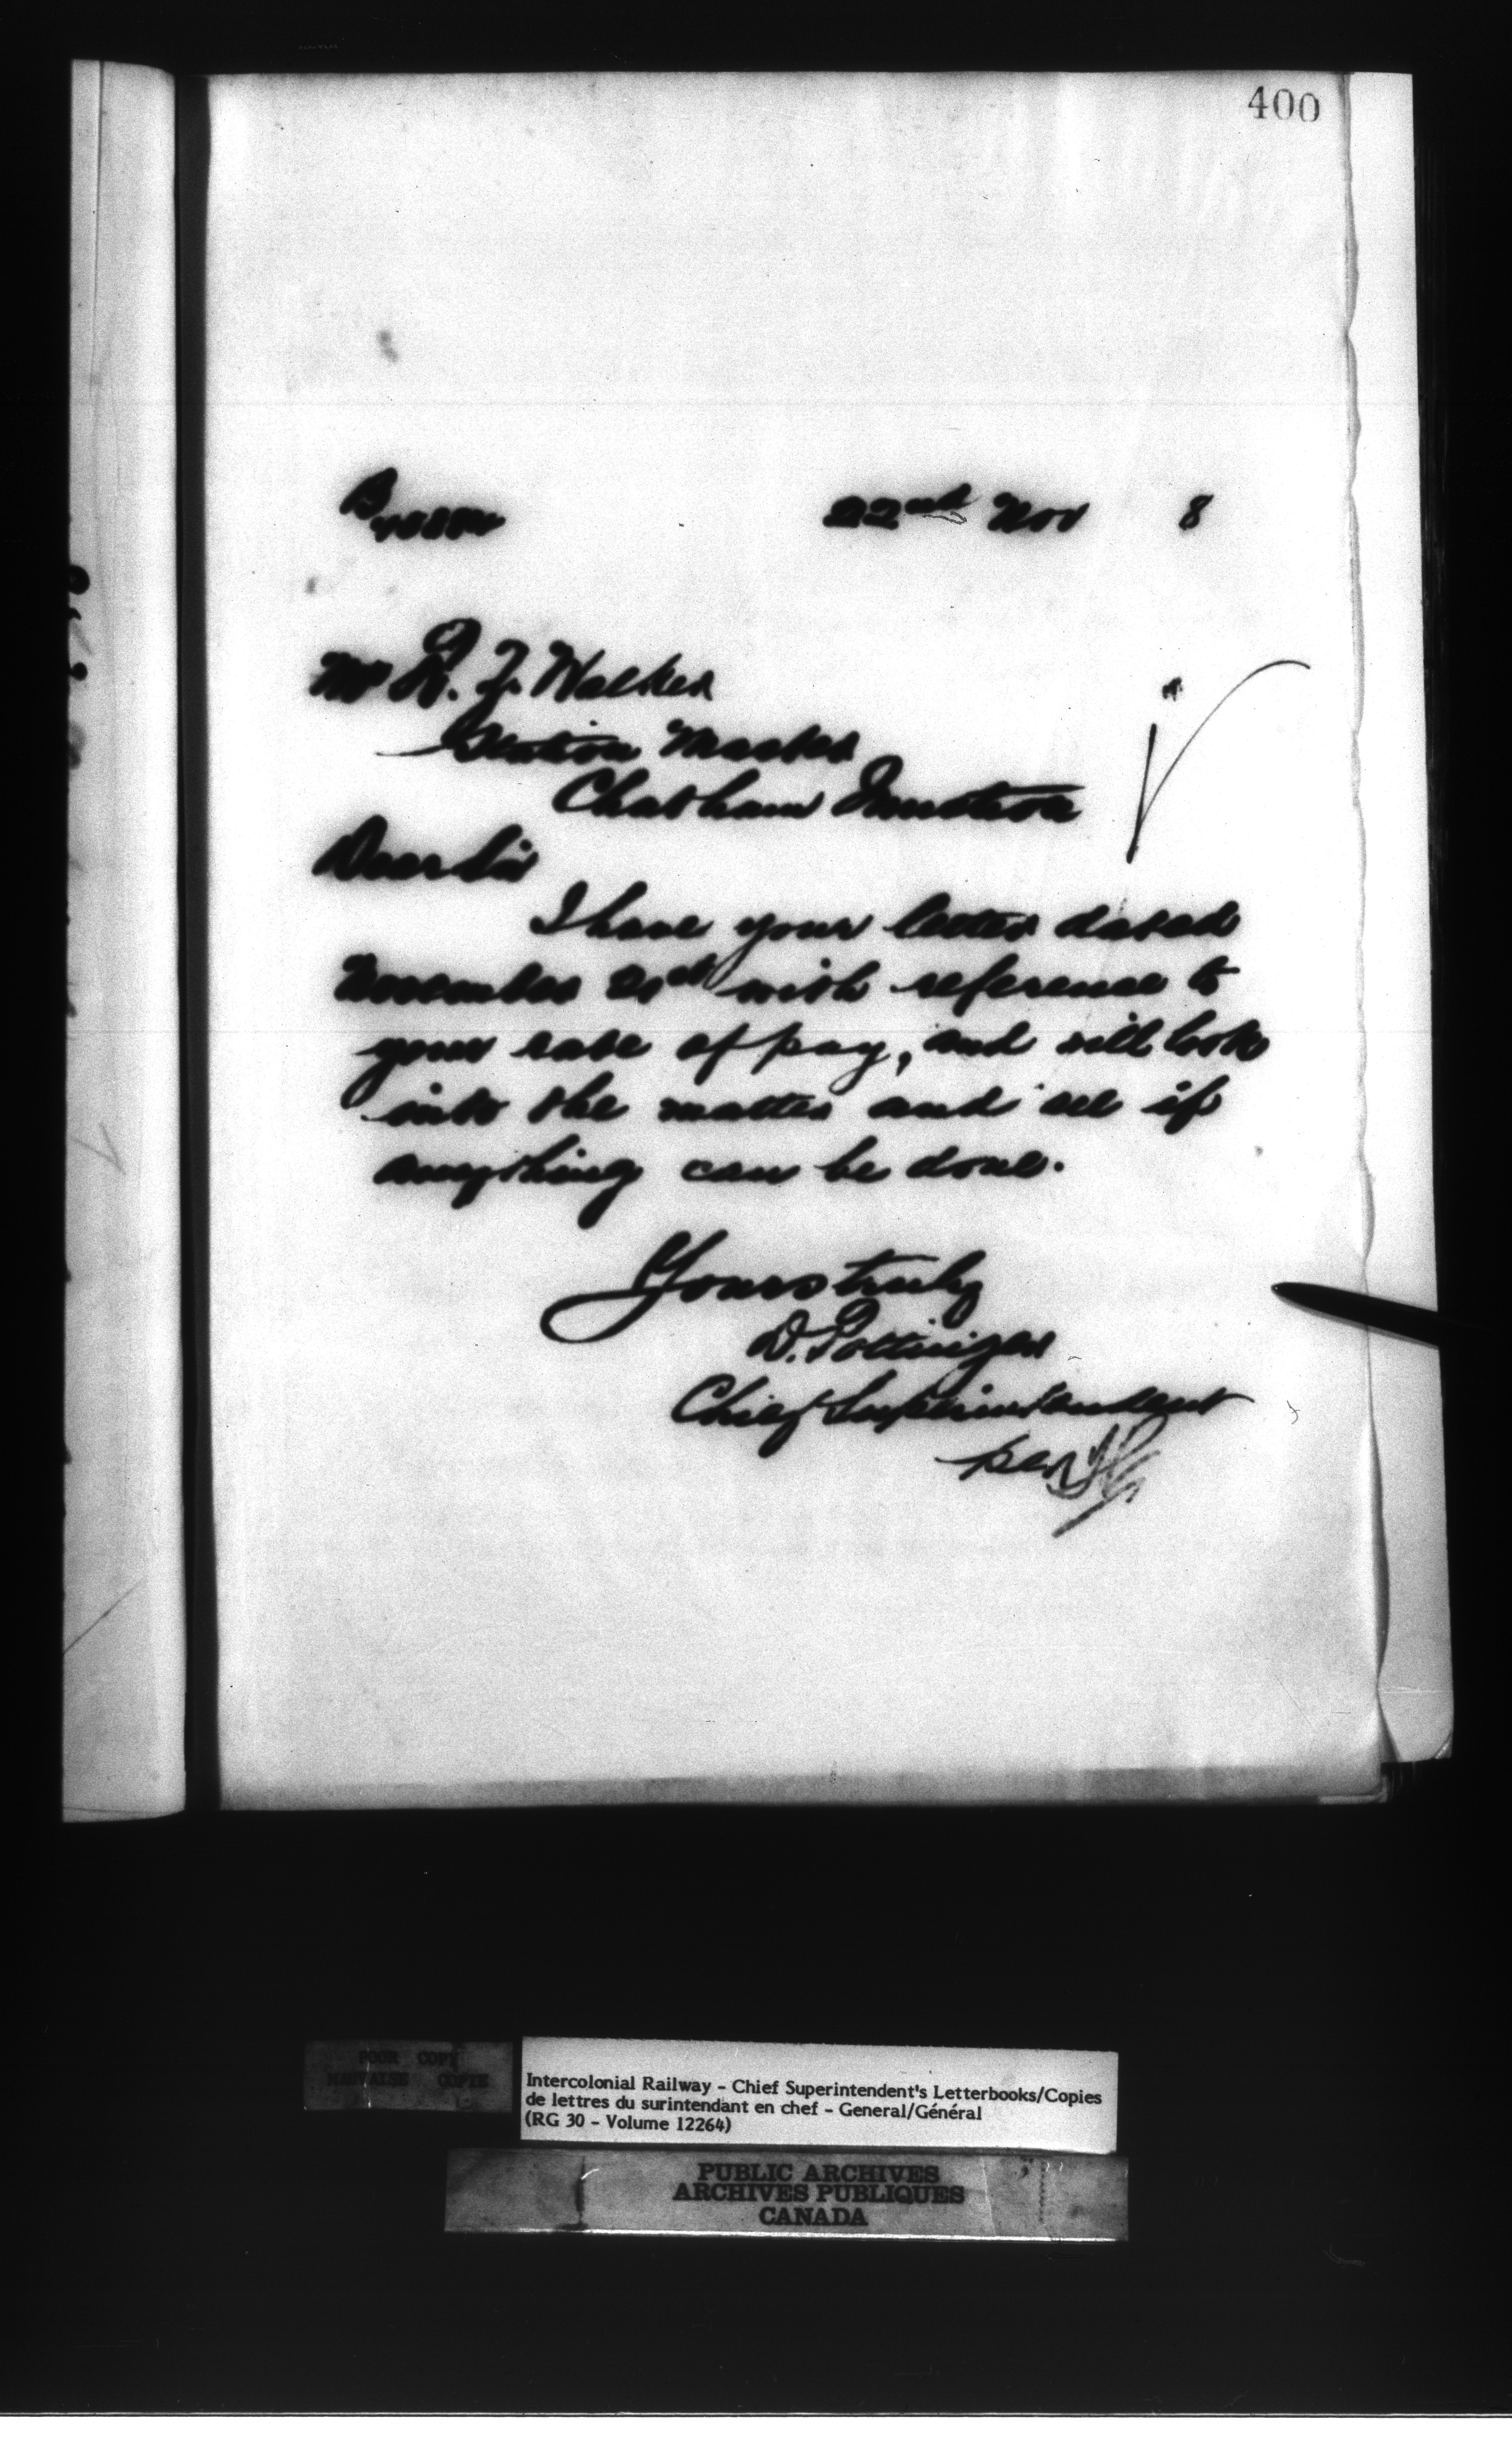 400
22nd Nov 8
Mr R. F. Walker
Station Master
Chatham Junction
Dear Sir
I have your letter dated
November 21st with reference to
your rate of pay, and will look
into the matter and see if
anything can be done.
Yours truly
D. Pottinger
Chief Superintendent
per
POOR COPY
MAUVAISE COPIE
Intercolonial Railway - Chief Superintendent's Letterbooks/Copies
de lettres du surintendant en chef - General/Général
(RG 30 - Volume 12264)
PUBLIC ARCHIVES
ARCHIVES PUBLIQUES
CANADA